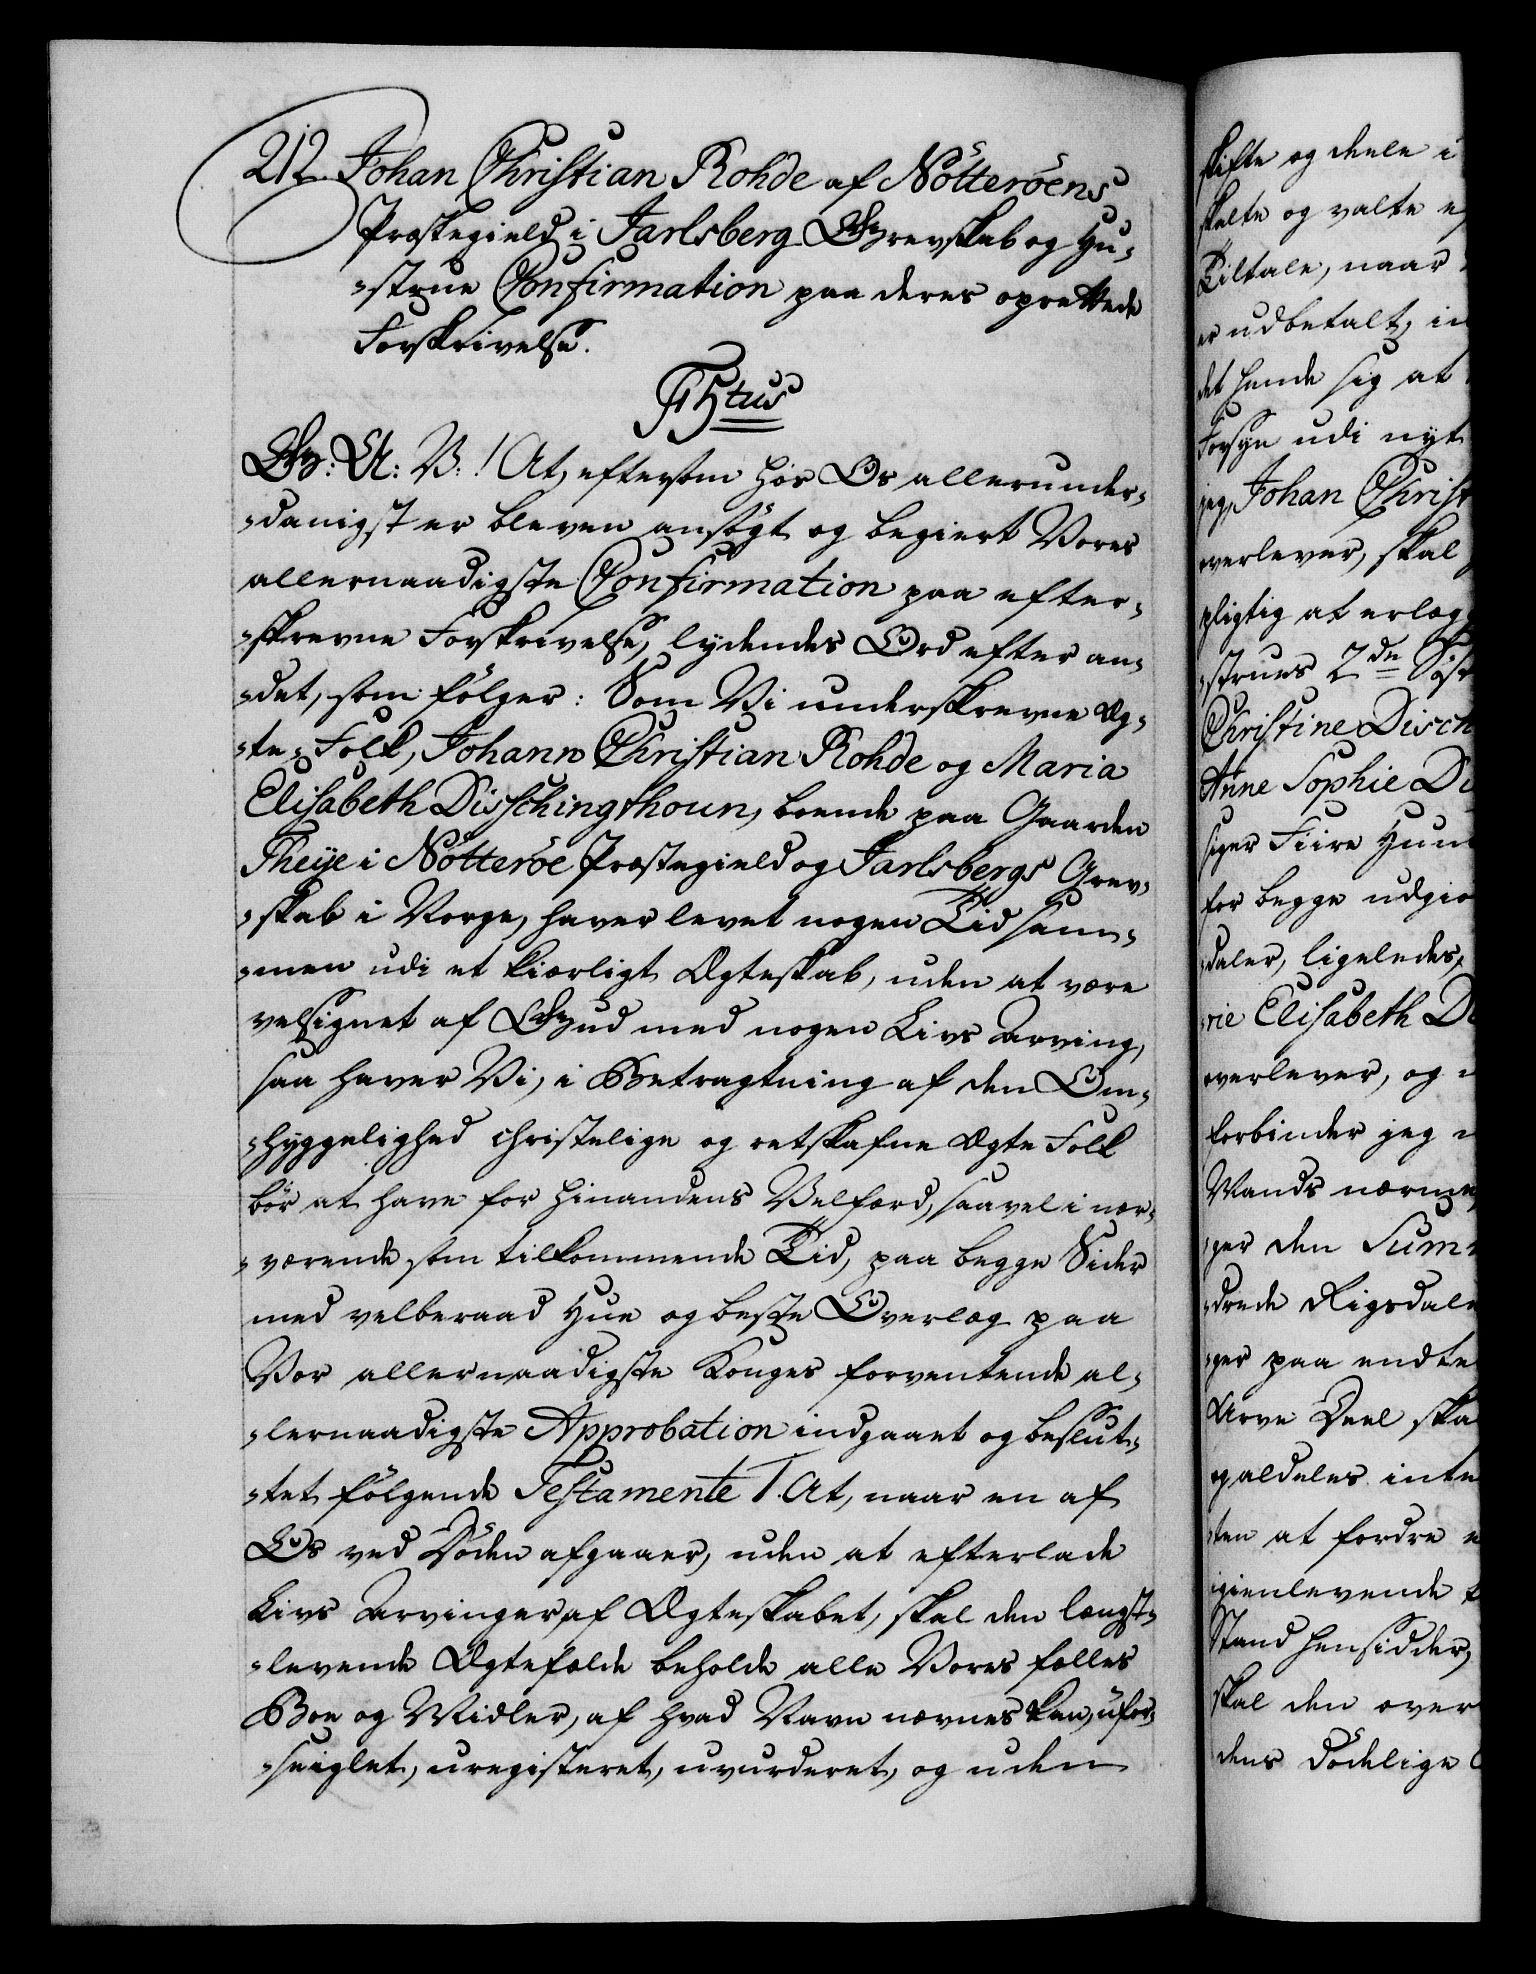 212. Johan Christian Rohde af Nötteröens
Præstegield i Jarlsberg Grevskab og Hu-
-strue Confirmation paa deres oprettede
Forskrivelse.
Gr: A: V:! At, eftersom hos Os allerunder-
-danigst er bleven ansögt og begiert Vores
allernaadigste Confirmation paa efter-
-skrevne Forskrivelse, lydendes Ord efter an-
-det, som fölger: Som Vi underskrevne Æg-
-te-Folk, Johann Christian Rohde og Maria
Elisabeth Disschingthoun, boende paa Gaarden
Theije i Nötteröe Præstegield og Jarlsbergs Grev-
-skab i Norge, haver levet nogen Tid sam-
-men udi et kiærligt Ægteskab, uden at være
velsignet af Gud med nogen Livs Arving,
saa haver Vi, i Betragtning af den Om-
-hyggelighed christelige og retskafne Ægte Folk
bör at have for hinandens Velfærd, saavel i nær-
-værende som tilkommende Tid, paa begge Sider
med velberaad Hue og beste Overlæg paa
Vor allernaadigste Konges forventende al-
-lernaadigste Approbation indgaaet og beslut-
-tet fölgende Testamente 1. At, naar en af
Os ved Döden afgaaer, uden at efterlade
Livs Arvinger af Ægteskabet, skal den længst-
-levende Ægtefælde beholde alle Vores fælles
Boe og Midler, af hvad Navn nævnes kan, ufor-
-seiglet, uregisteret, uvurderet, og uden
skifte og deele i
skalte og valte
Tiltale, naar
er udbetalt, in
det hende sig at
Forsyn udi nyt
jeg, Johan Christ
overlever, skal
pligtig at erlæg
-strues 2de Söst
Christine Disch
Anne Sophie Di
siger Fiire Hun
for begge udgiö
-daler, ligeledes,
-rie Elisabeth D
overlever, og
forbinder jeg
Mands nærme
-ger den Sum
-drede Rigsdale
-ger paa endte
Arve Deel ska
og aldeles inte
-ten at fordre
igienlevende
Stand hensidder,
skal den over
dens dödelige